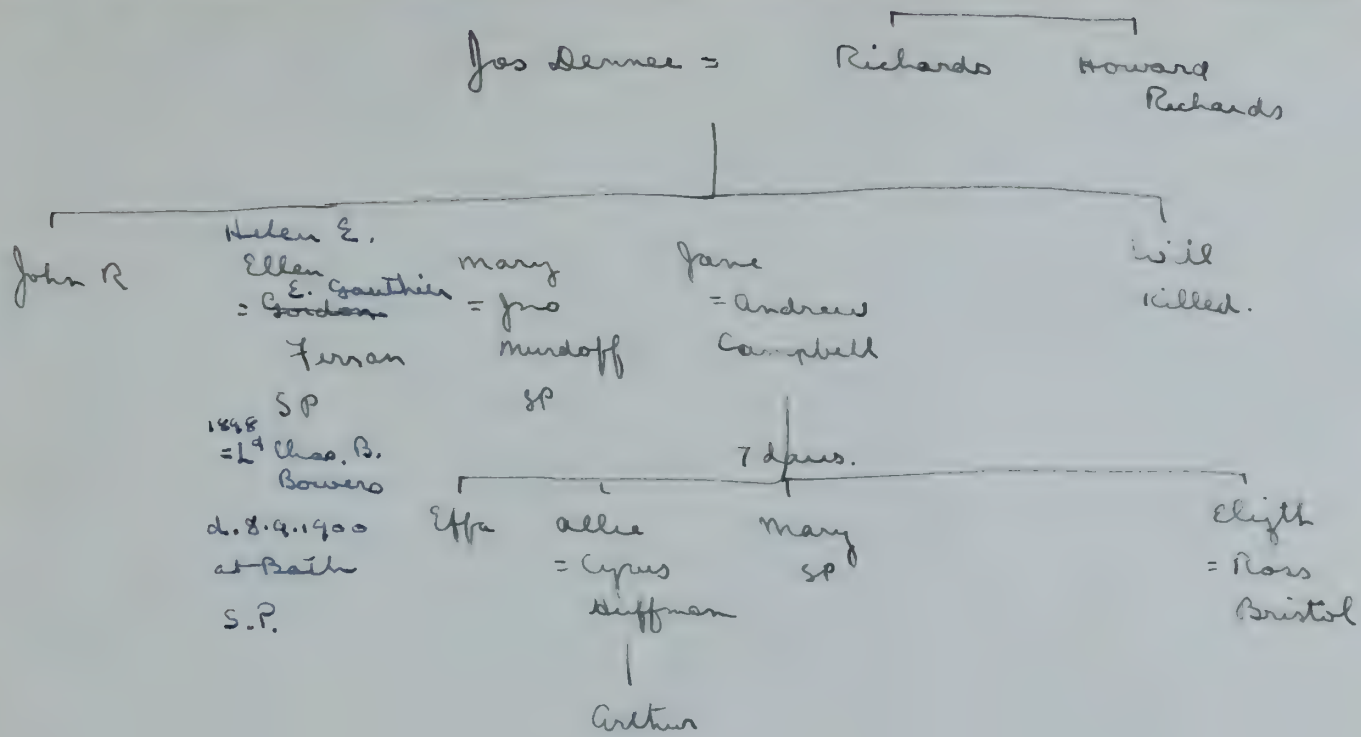 Jos Dennee = Richards Howard
Richards
John R
Helen E.
Ellen
E. Gauthier
= Gordon
Ferran
SP
1898
= Chas. B.
Bowers
d. 8.9.1900
at Bath
S.P.
Mary
= Jno
Murdoff
SP
Jane
= Andrew
Campbell
7 daus.
Wil
Killed.
Effa
Allie
= Cyrus
Huffman
Arthur
Mary
SP
Elizth
= Ross
Bristol